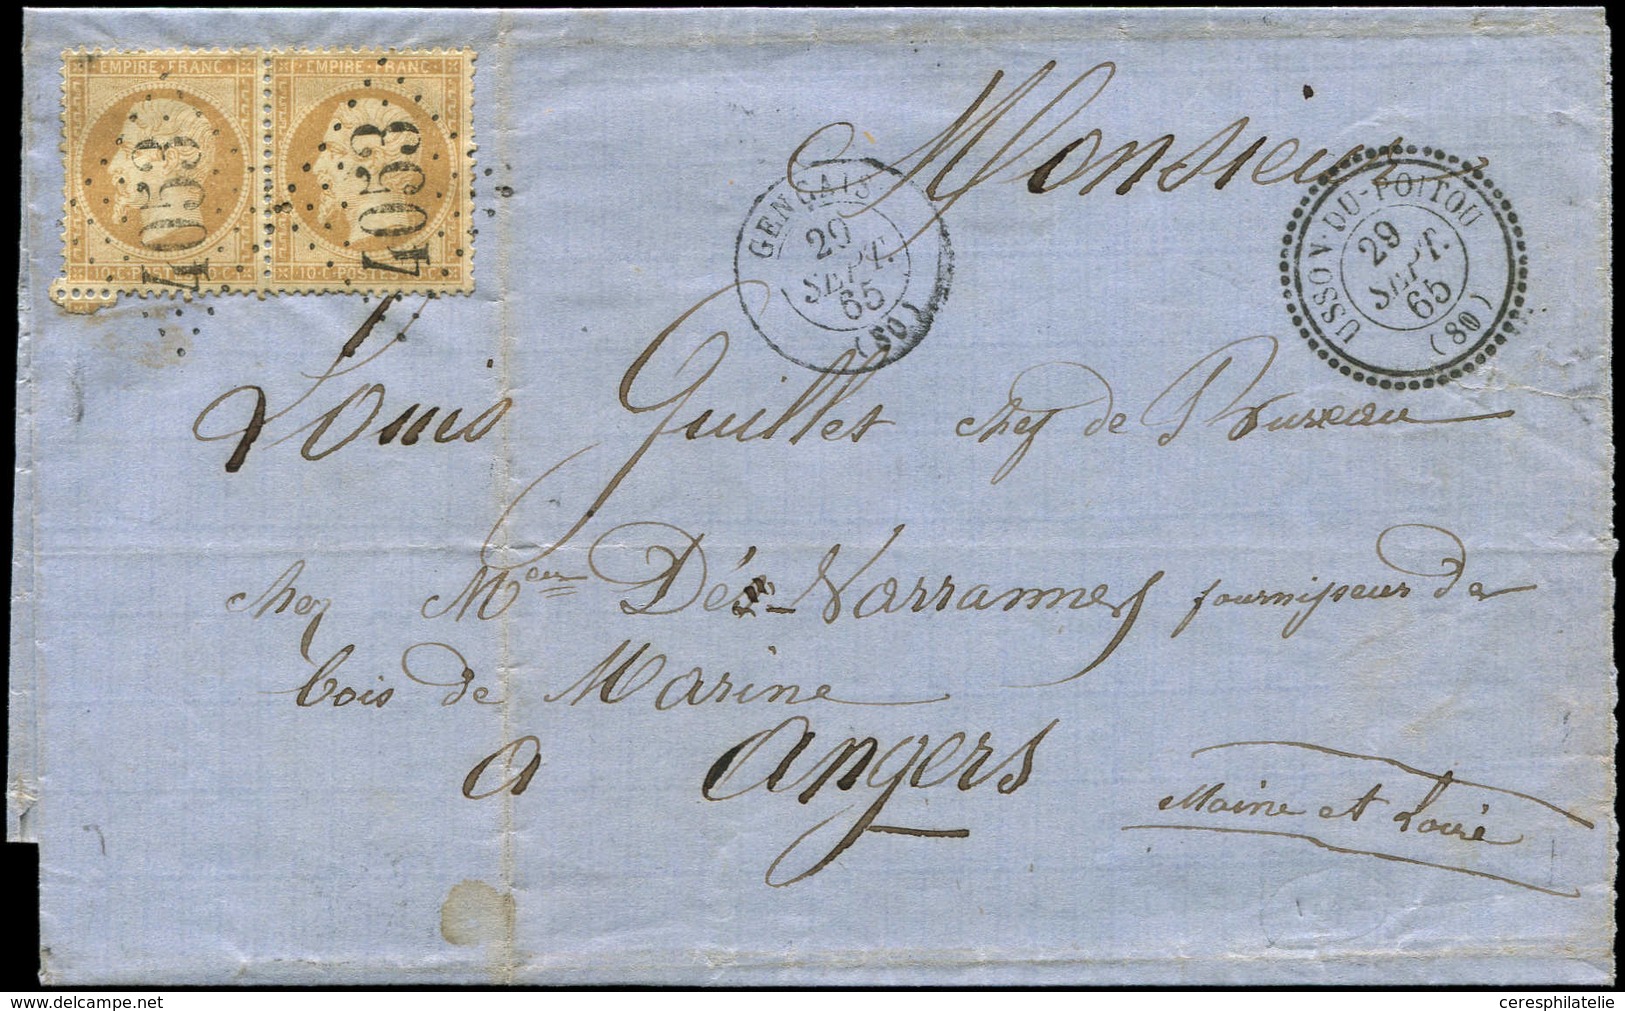 EMPIRE FRANC EMPIRE FRANC
4053 4053
10 C POSTES 10 C 10 C POSTES 10 C
GENÇAIS
29
SEPT.
65
(80)
USSON-DU-POITOU
29
SEPT.
65
(80)
Monsieur
Louis Guillet chez de Pruneau
chez Mr Dés-Varrannes fournisseur de
bois de Marine
a Angers
Maine et Loire
www.delcampe.net
ceresphilatelie